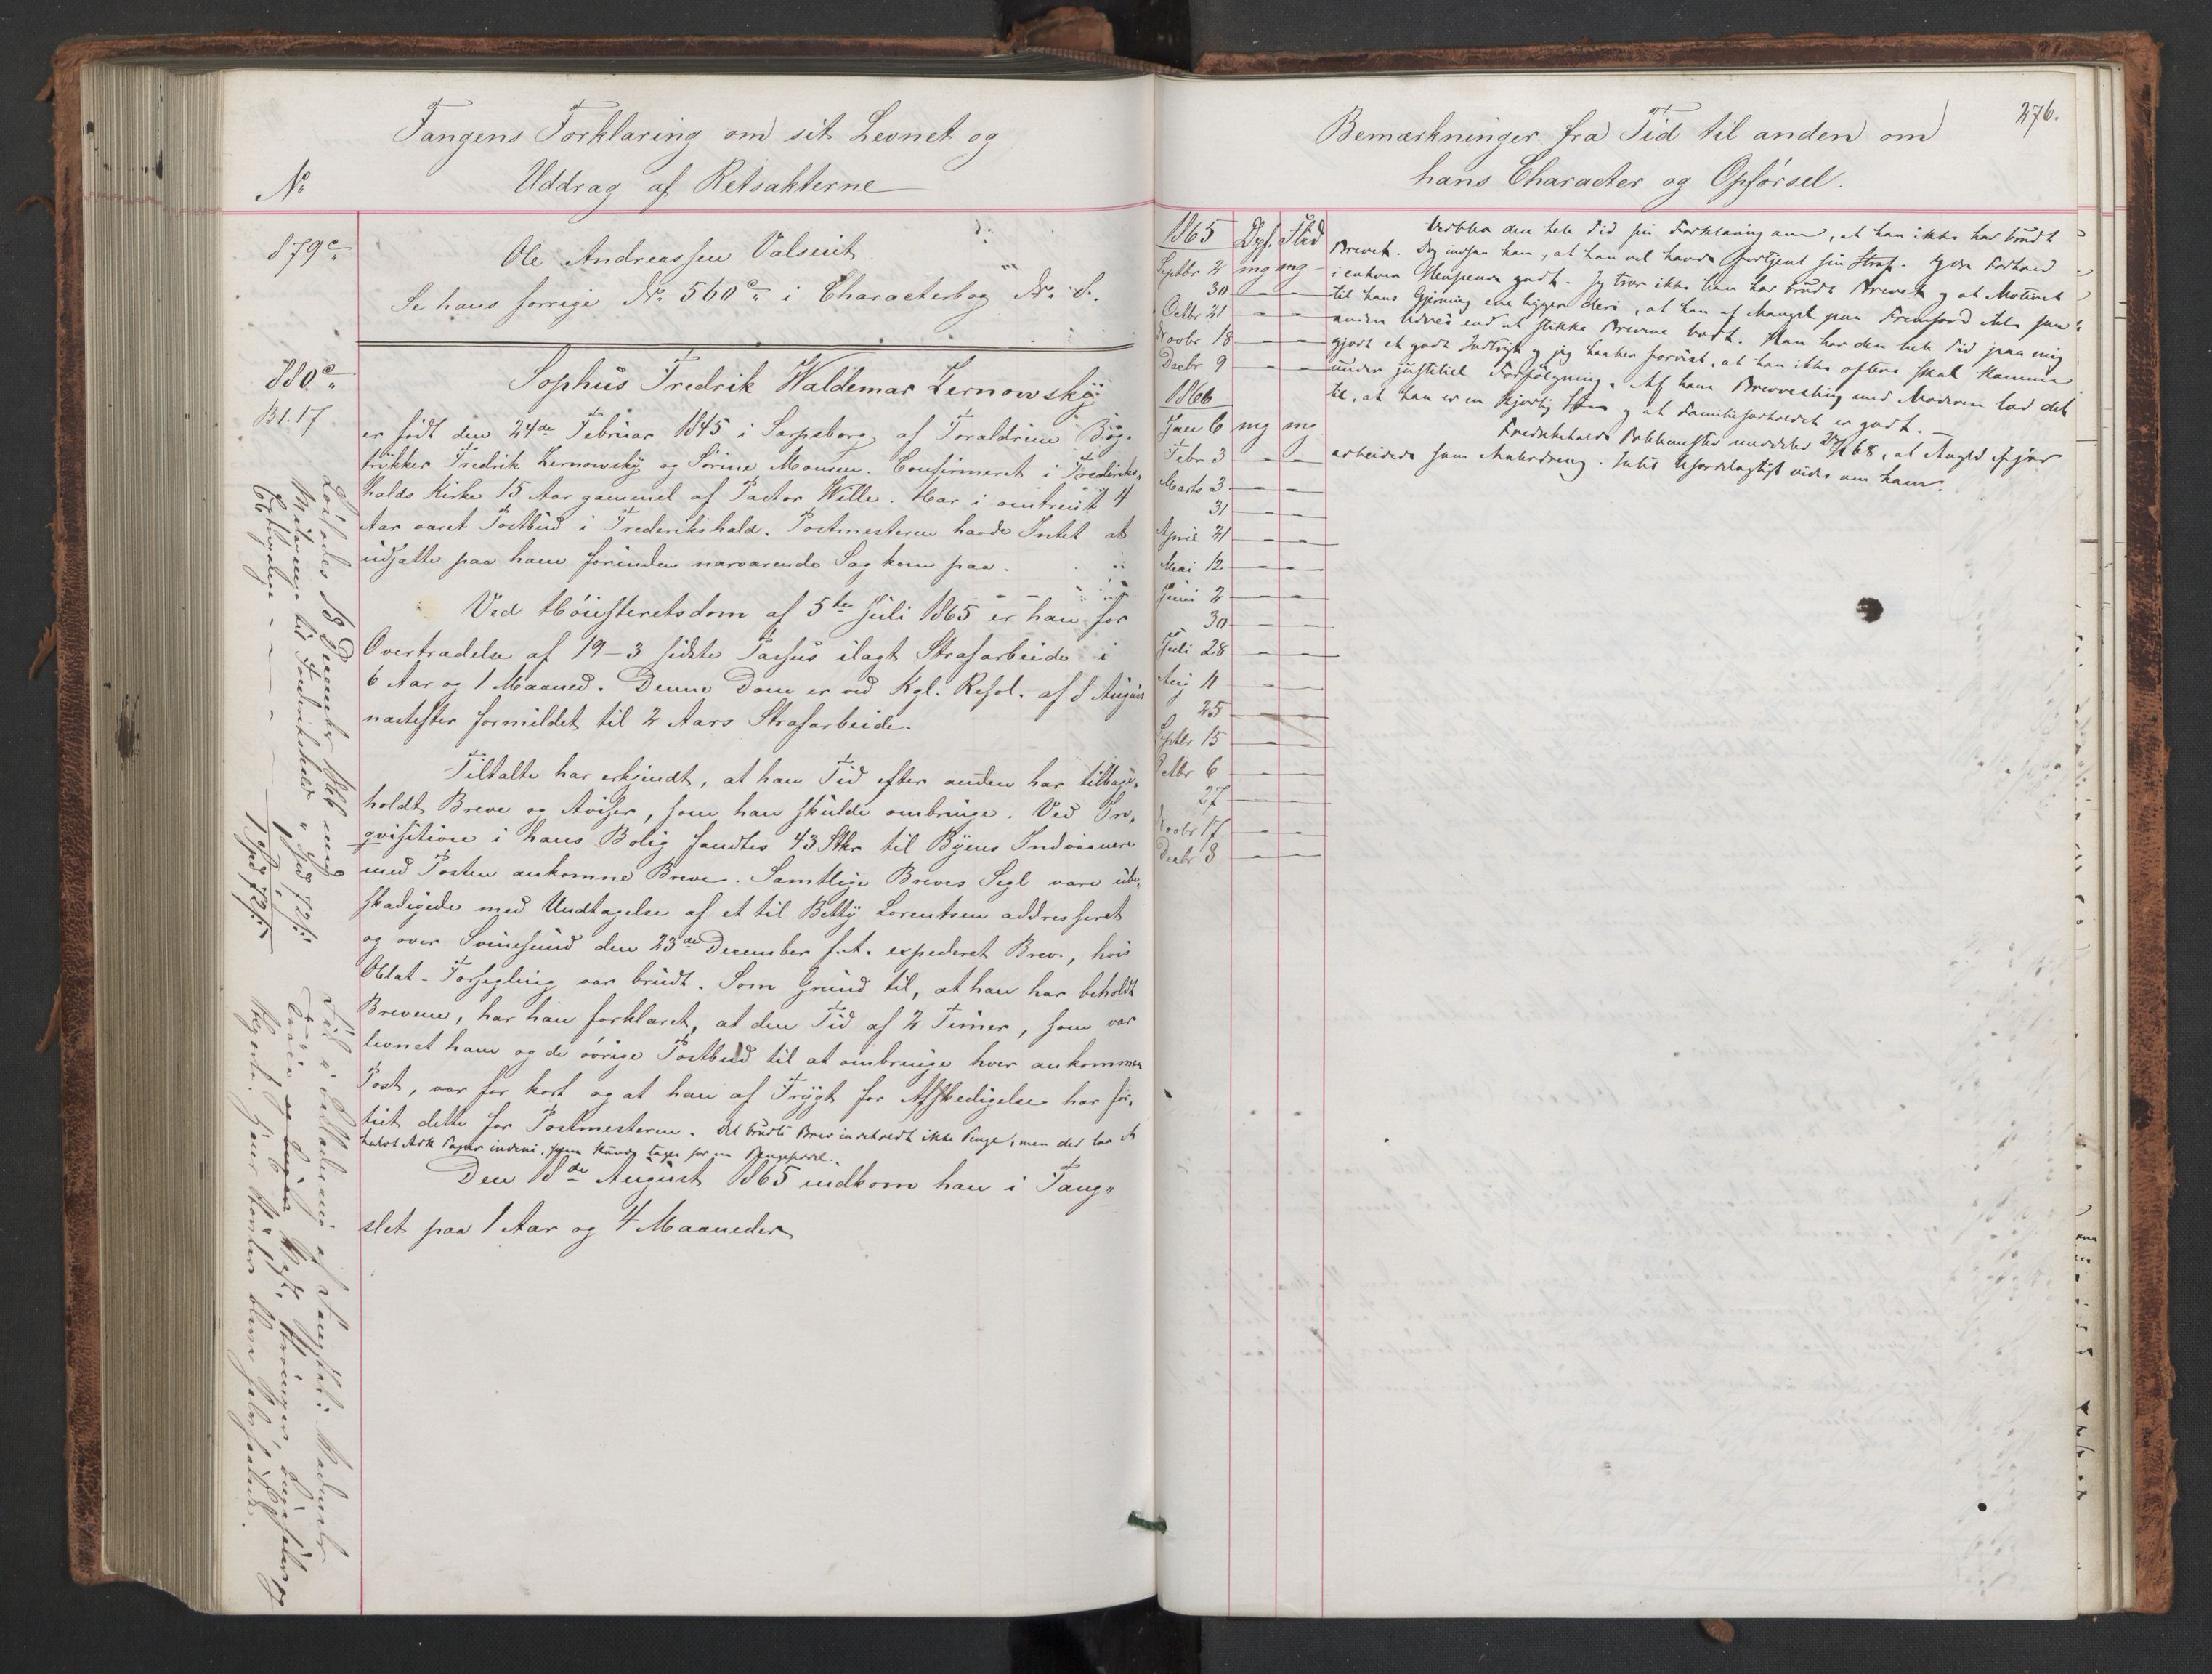 Fangens Forklaring om sit Levnet og
Uddrag af Retsakterne
No
879c
Ole Andreassen Valseut
Se hans forrige No 560c i Characterbog No
880c
Bl. 17
Sophus Fredrik Waldemar Zernowsky
er født den 24de Februar 1845 i Sarpsborg af Forældrene Bog-
trykker Fredrik Zernowsky og Sørine Monsen. Confirmeret i Frederiks-
halds Kirke 15 Aar gammel af Pastor Wille. Har i omtrent 4
Aar været Postbud i Frederikshald. Postmesteren havde Intet at
udsætte paa ham forinden nærværende Sag kom paa.
Ved Høiesteretsdom af 5te Juli 1865 er han for
Overtrædelse af 19-3 sidste Passus ilagt Strafarbeide i
6 Aar og 1 Maaned. Denne Dom er ved Kgl. Resol. af 8 August
næstefter formildet til 2 Aars Strafarbeide.
Tiltalte har erkjendt, at han Tid efter anden har tilbage-
holdt Breve og Aviser, som han skulde ombringe. Ved In-
qvisition i hans Bolig fandtes 43 Stkr til Byens Indvaanere
med Posten ankomne Breve. Samtlige Breves Segl vare ube-
skadigede med Undtagelse af et til Betty Lorentsen addresseret
og over Svinesund den 23de December f. A. expederet Brev, hvis
Oblat-Forsegling var brudt. Som Grund til, at han har beholdt
Brevene, har han forklaret, at den Tid af 2 Timer, som var
levnet ham og de øvrige Postbud til at ombringe hver ankommen
Post, var for kort og at han af Frygt for Afskedigelse har for-
tiet dette for Postmesteren. Det brudte Brev indeholdt ikke Penge, men der laa et
halvt Ark Papir indeni, som kunde tages for en Pengeseddel.
Den 18de August 1865 indkom han i Fæng-
slet paa 1 Aar og 4 Maaneder
Løslodes 18 December 1866 med
til Frederikshald 1 Spd 72
1 Spd 72
Bemærkninger fra Tid til anden om
hans Character og Opførsel.
276.
1865 Opf. Flid
Septbr 2 mg mg
30 - -
Octbr 21 - -
Novbr 18 - -
Decbr 9 - -
1866
Jan 6 mg mg
Febr 3 - -
Marts 3 - -
31 - -
April 21 - -
Mai 12 - -
Juni 2 - -
30 - -
Juli 28 - -
Aug 11 - -
25 - -
Septbr 15 - -
Octbr 6 - -
27 - -
Novbr 17 - -
Decbr 8 - -
Vedblev den hele Tid sin Forklaring om, at han ikke har brudt
Brevet. Dog indsaa han, at han vel havde fortjent sin Straf. Hans Forhold
i enhver Henseende godt. Jeg tror ikke han har brudt Brevet og at Motivet
til hans Gjerning ene ligger deri, at han af Mangel paa Fremfærd ikke saa
anden Udvei end at stikke Brevene bort. Han har den hele Tid paa mig
gjort et godt Indtryk og jeg haaber forvist, at han ikke oftere skal komme
under justitiel Forfølgning. Af hans Brevvexling med Moderen lod det
til, at han er en kjærlig Søn og at Familieforholdet er godt.
Fredrikshalds meddeles 68, at
arbeidede som . Intet ufordelagtigt vides om ham.